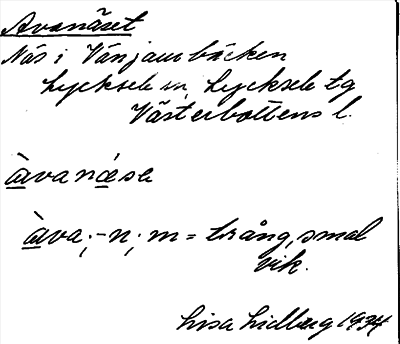 Avanäset
Näs i Vänjaurbäcken
Lycksele sn, Lycksele tg
Västerbottens l.
àvanǽsə
àva; -n; m = trång, smal
vik.
Lisa Lidberg 1934